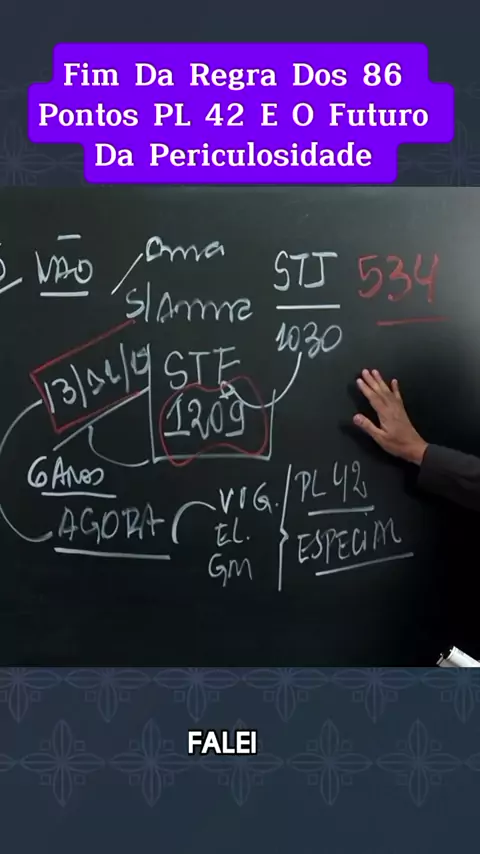 Fim Da Regra Dos 86
Pontos PL 42 E O Futuro
Da Periculosidade
NÃO
Arma
S/Arma
STJ 534
1030
STF
1209
6 Anos
AGORA
VIG.
EL.
GM
PL 42
ESPECIAL
FALEI